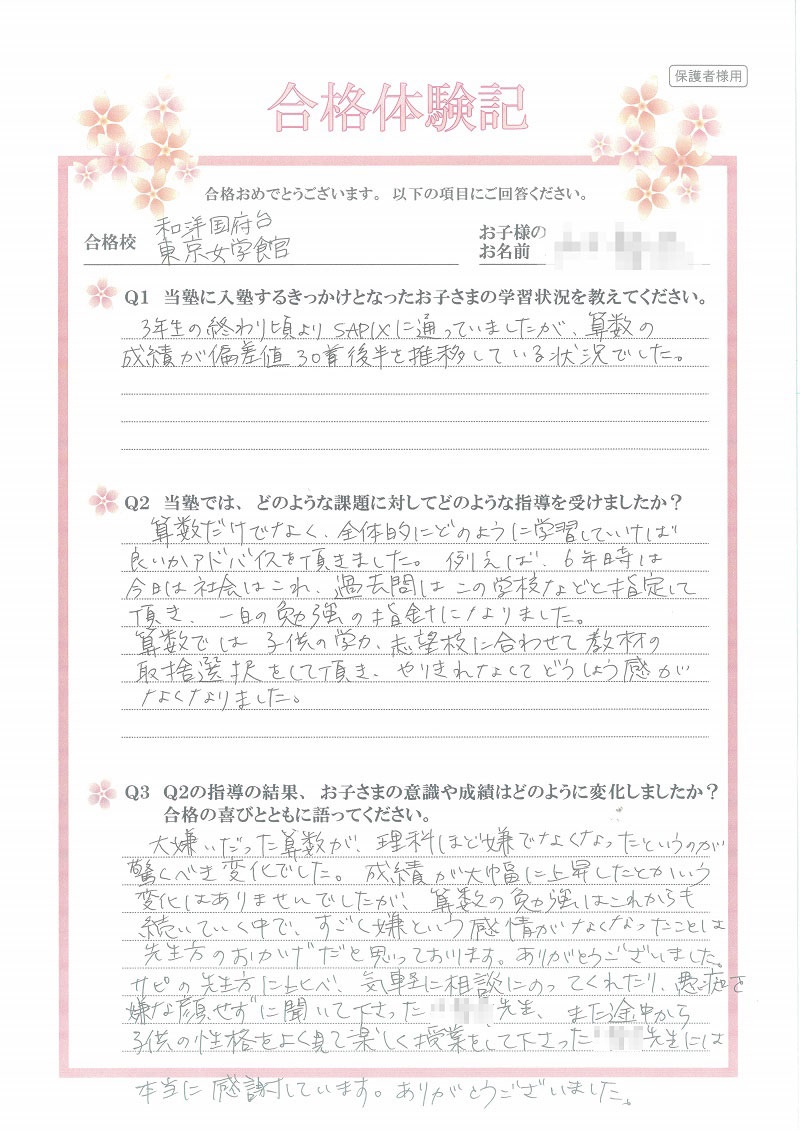 保護者様用
合格体験記
合格おめでとうございます。以下の項目にご回答ください。
合格校 和洋国府台
東京女学館
お子様の
お名前
Q1 当塾に入塾するきっかけとなったお子さまの学習状況を教えてください。
3年生の終わり頃よりSAPIXに通っていましたが、算数の
成績が偏差値30前後半を推移している状況でした。
Q2 当塾では、どのような課題に対してどのような指導を受けましたか?
算数だけでなく、全体的にどのように学習していけば
良いかアドバイスを頂きました。例えば、6年時は
今日は社会はこれ、過去問はこの学校などと指定して
頂き、一日の勉強の指針になりました。
算数では子供の学力、志望校に合わせて教材の
取捨選択をして頂き、やりきれなくてどうしよう感が
なくなりました。
Q3 Q2の指導の結果、お子さまの意識や成績はどのように変化しましたか?
合格の喜びとともに語ってください。
大嫌いだった算数が、理科ほど嫌でなくなったというのが
驚くべき変化でした。成績が大幅に上昇したとかいう
変化はありませんでしたが、算数の勉強はこれからも
続いていく中で、すごく嫌という感情がなくなったことは
先生方のおかげだと思っております。ありがとうございました。
サピの先生方に比べ、気軽に相談にのってくれたり、愚痴を
嫌な顔せずに聞いて下さった 先生、また途中から
子供の性格をよく見て楽しく授業をして下さった 先生には
本当に感謝しています。ありがとうございました。